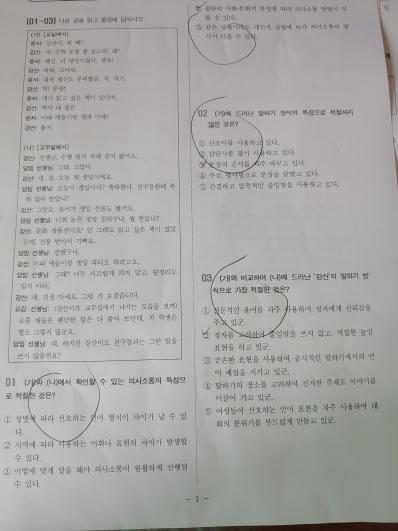 [01~03] 다음 글을 읽고 물음에 답하시오.
(가) [교실에서]
윤서: 강산아, 뭐 해?
강산: 어, 수학 문풀 좀 보느라, 왜?
윤서: 왜긴, 너 생일이잖아. 생축!
강산: 하하, 고마워.
윤서: 내가 생선도 준비했음. 자, 여기.
강산: 헉! 문상!
윤서: 네가 읽고 싶은 책이 있다며.
강산: 역시 내 절친
윤서: 이따 애들이랑 생파 어때?
강산: 좋지.
(나) [교무실에서]
강산: 선생님, 수행 평가 과제 걷어 왔어요.
담임 선생님: 그래, 고맙다.
강산: 네. 참, 오늘 제 생일이에요.
담임 선생님: 오늘이 생일이니? 축하한다. 친구들한테 축
하 많이 받았니?
강산: 그럼요. 윤서가 생일 선물도 줬어요.
담임 선생님: 너희 둘은 정말 친하구나. 뭘 받았니?
강산: 문화 상품권이요! 안 그래도 읽고 싶은 책이 있었
는데, 선물 받아서 기뻐요.
담임 선생님: 잘됐구나.
강산: 이따 애들이랑 생일 파티도 하려고요.
담임 선생님: 그래? 너무 시끄럽게 하지 말고, 뒷정리도
잊지 마라.
강산: 네, 걱정 마세요. 그럼 가 보겠습니다.
교감 선생님: (강산이가 교무실에서 나가는 모습을 보며)
요즘 애들은 웬만한 말은 다 줄여 쓰던데, 저 학생은
별로 그렇지 않군요.
담임 선생님: 네, 하지만 강산이도 친구들과는 그런 말을
쓰지 않을까요?
01 (가)와 (나)에서 확인할 수 있는 의사소통의 특성으
로 적절한 것은?
① 성별에 따라 선호하는 언어 형식이 차이가 날 수 있
다.
② 지역에 따라 사용하는 어휘나 표현의 차이가 발생할
수 있다.
③ 어법에 맞게 말을 해야 의사소통이 원활하게 진행될
수 있다.
④ 집단의 사회·문화적 특성에 따라 의사소통 방법이 다
를 수 있다.
⑤ 같은 상황이라도 개인적 성향에 따라 의사소통의 방
식이 다를 수 있다.
02 (가)에 드러난 말하기 방식의 특징으로 적절하지
않은 것은?
① 신조어를 사용하고 있다.
② 감탄사를 많이 사용하고 있다.
③ 문장의 순서를 자주 바꾸고 있다.
④ 주로 명사형으로 문장을 끝맺고 있다.
⑤ 간결하고 압축적인 줄임말을 사용하고 있다.
03 (가)와 비교하여 (나)에 드러난 '강산'의 말하기 방
식으로 가장 적절한 것은?
① 전문적인 용어를 자주 사용하여 청자에게 신뢰감을
주고 있군.
② 청자를 고려하여 줄임말을 쓰지 않고, 적절한 높임
표현을 하고 있군.
③ 공손한 표현을 사용하여 공식적인 말하기에서의 언
어 예절을 지키고 있군.
④ 말하기의 장소를 고려하여 진지한 주제로 이야기를
이끌어 가고 있군.
⑤ 여성들이 선호하는 언어 표현을 자주 사용하여 대
화의 분위기를 부드럽게 만들고 있군.
- 1 -